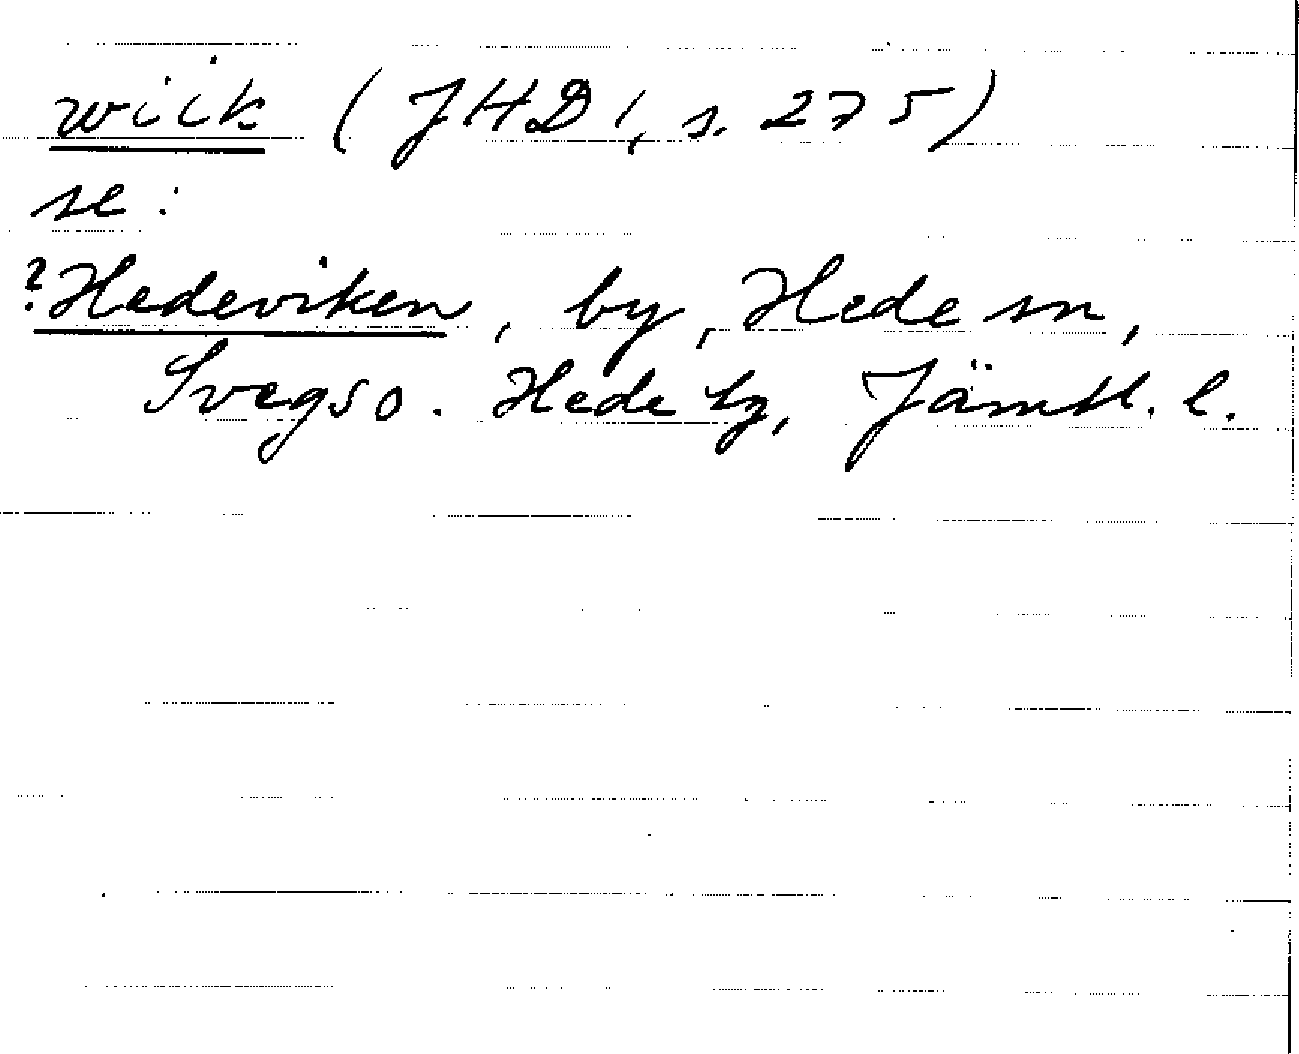 wiik (JHD 1, s. 275)
se:
? Hedeviken, by, Hede sn,
Svegs o. Hede tg, Jämtl. l.